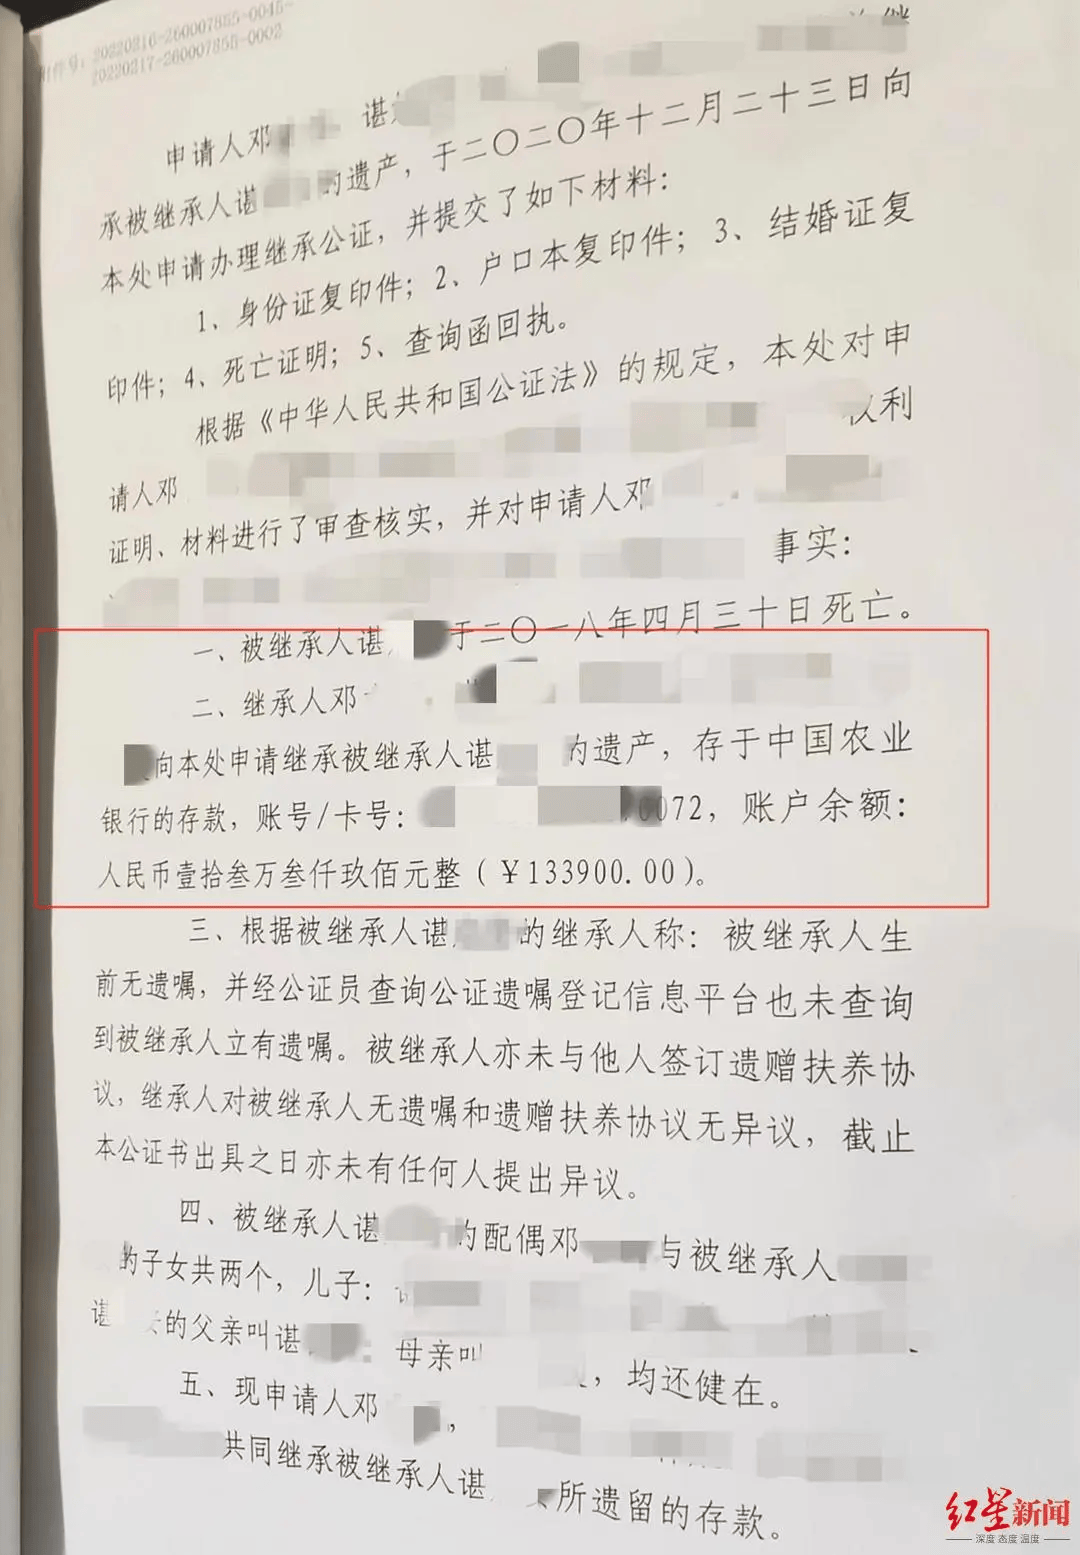 附件号：20220216-260007855-0045-
20220217-260007855-0002
申请人邓 谌 继
承被继承人谌 的遗产，于二〇二〇年十二月二十三日向
本处申请办理继承公证，并提交了如下材料：
1、身份证复印件；2、户口本复印件；3、结婚证复
印件；4、死亡证明；5、查询函回执。
根据《中华人民共和国公证法》的规定，本处对申
请人邓 权利
证明、材料进行了审查核实，并对申请人邓
事实：
一、被继承人谌 于二〇一八年四月三十日死亡。
二、继承人邓
向本处申请继承被继承人谌 的遗产，存于中国农业
银行的存款，账号/卡号： 0072，账户余额：
人民币壹拾叁万叁仟玖佰元整（￥133900.00）。
三、根据被继承人谌 的继承人称：被继承人生
前无遗嘱，并经公证员查询公证遗嘱登记信息平台也未查询
到被继承人立有遗嘱。被继承人亦未与他人签订遗赠扶养协
议，继承人对被继承人无遗嘱和遗赠扶养协议无异议，截止
本公证书出具之日亦未有任何人提出异议。
四、被继承人谌 的配偶邓 与被继承人
的子女共两个，儿子：
谌 的父亲叫谌 ：母亲叫 ，均还健在。
五、现申请人邓 ，
共同继承被继承人谌 所遗留的存款。
红星新闻
深度 态度 温度